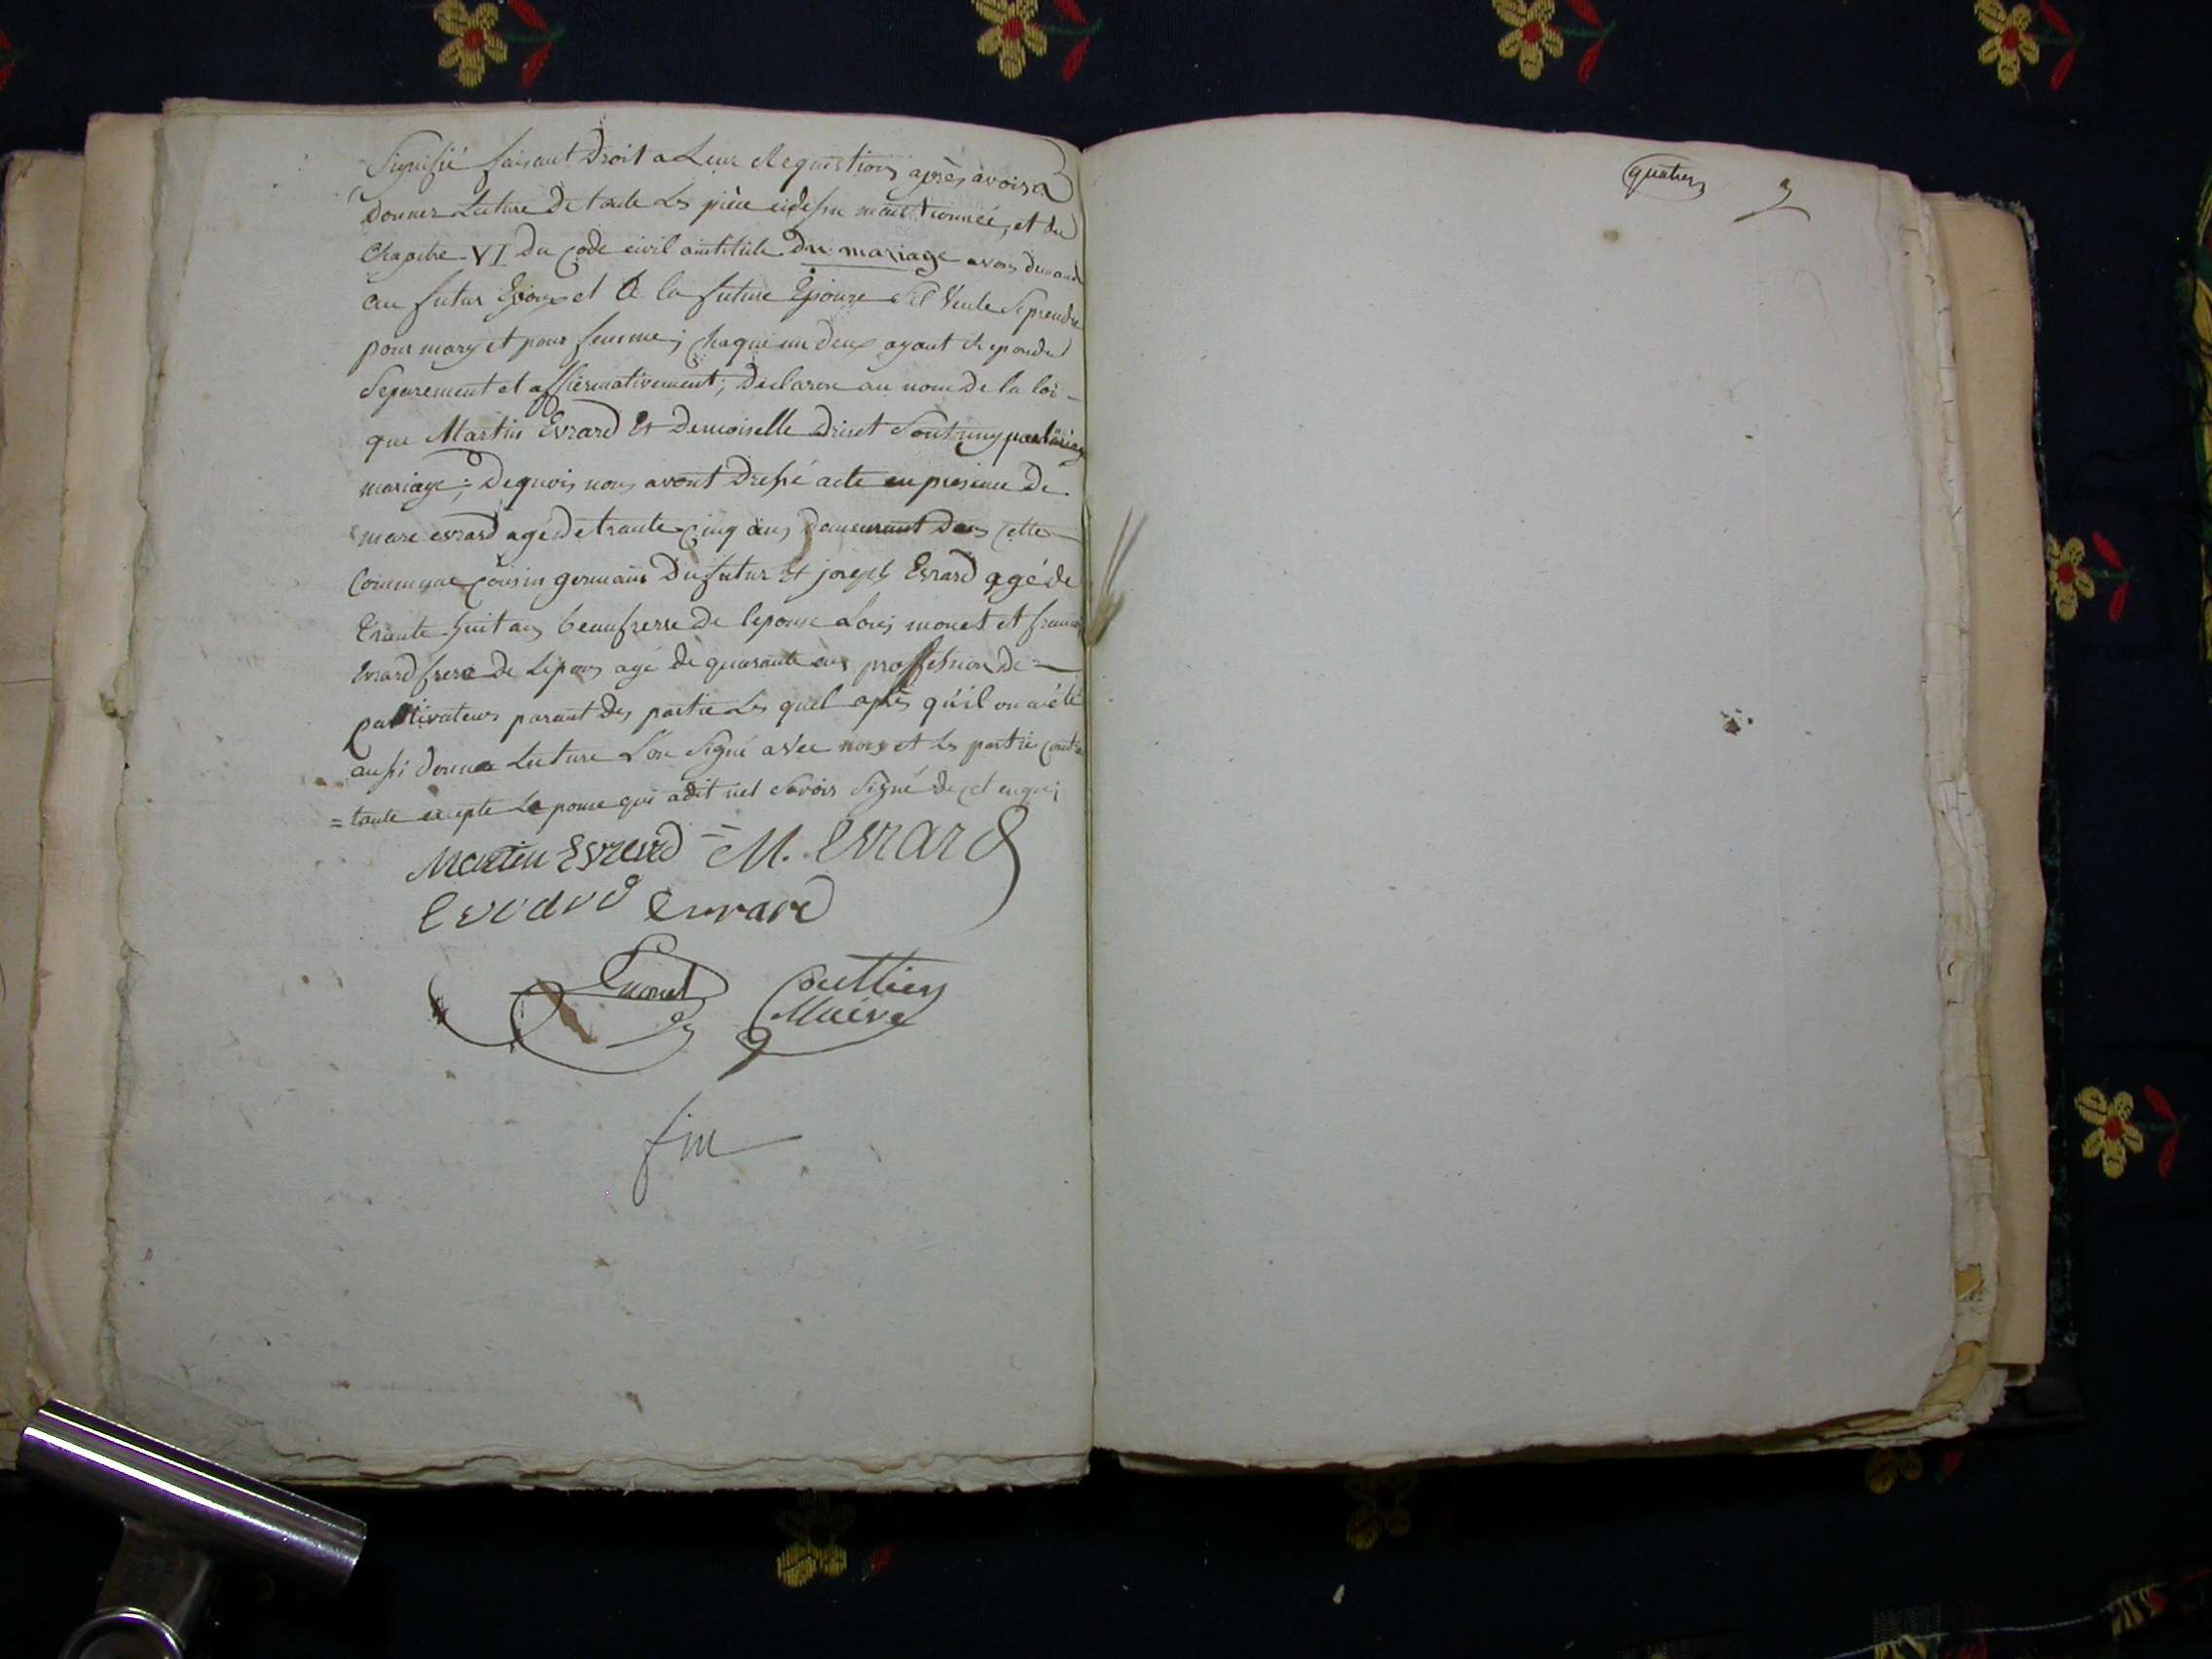 Signifié faisant Droit a Leur Requistions après avoir
Donner Lecture De toute Les pièce cidessu mentionnée, et du
Chapitre VI Du Code civil antitule Du mariage avons demandé
au futur Epoux et A la future Epouze Sil Veule Se prendre
pour mary et pour femme; chaque un deux ayant Repondu
Separement et affiermativement; Declaron au nom De la loi -
que Martin Evrard Et Demoiselle Drieut Sont uny par
mariage; Dequois nous avont Dressé acte en presence De
marc evrard agé de trante Cinq ans Demeurant Dans Cette
Commune Cousin germain Du futur Et joseph Evrard agé de
trante huit ans beaufrerre De lepouse Louis monet et
Evrard frere de Lepoux agé De quarante ans proffession De =
Cultivateurs parant Des partie Les quel après qu'il on a été
aussi donner Lecture L'on Signé avec nous et Les partie Contra
= tante excepte Lepouse qui a dit nel Savoir Signé De cet enquis
Martin Evrard = M. Evrard
Evrard Evrard
Lmonet
Maire
fin
quatres